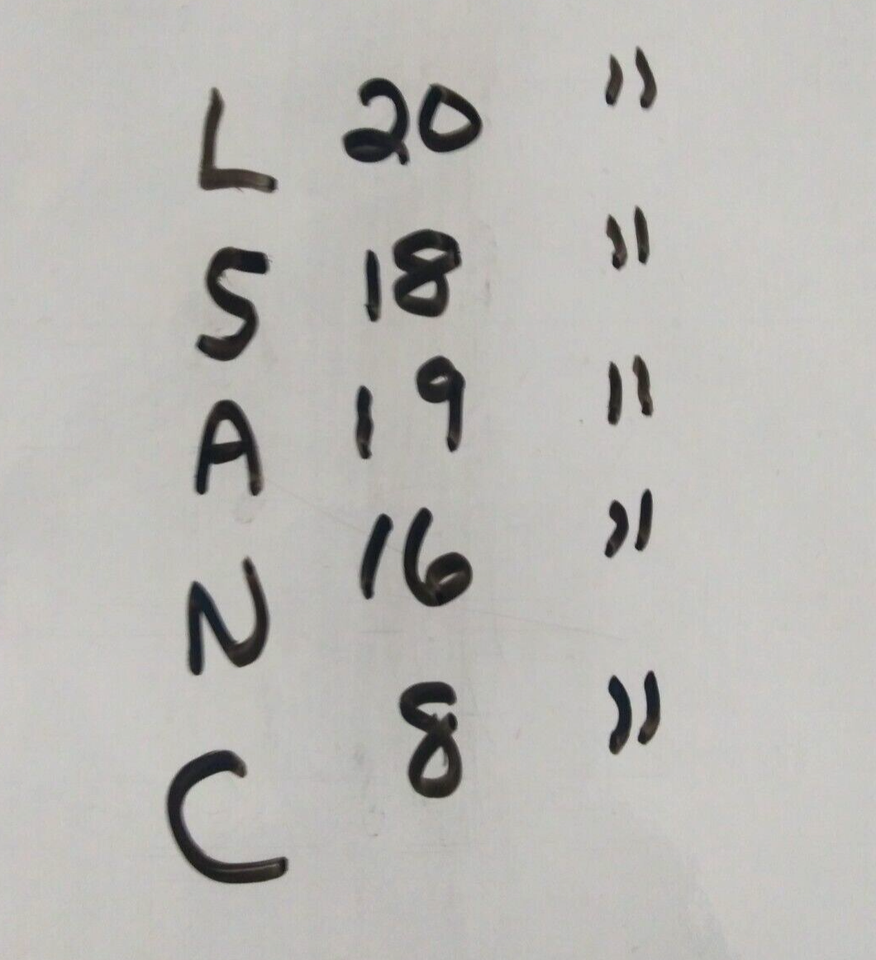 L 20 "
S 18 "
A 19 "
N 16 "
C 8 "